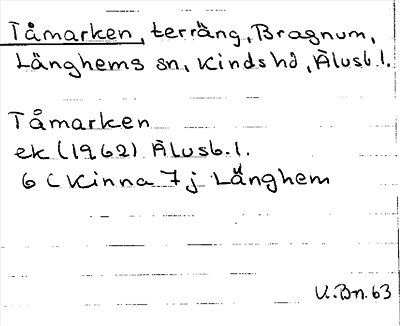 Tåmarken, terräng, Bragnum,
Länghems sn, Kinds hd, Älvsb. l.
Tåmarken
ek (1962) Älvsb. l.
6 C Kinna 7 j Länghem
U. Bn. 63